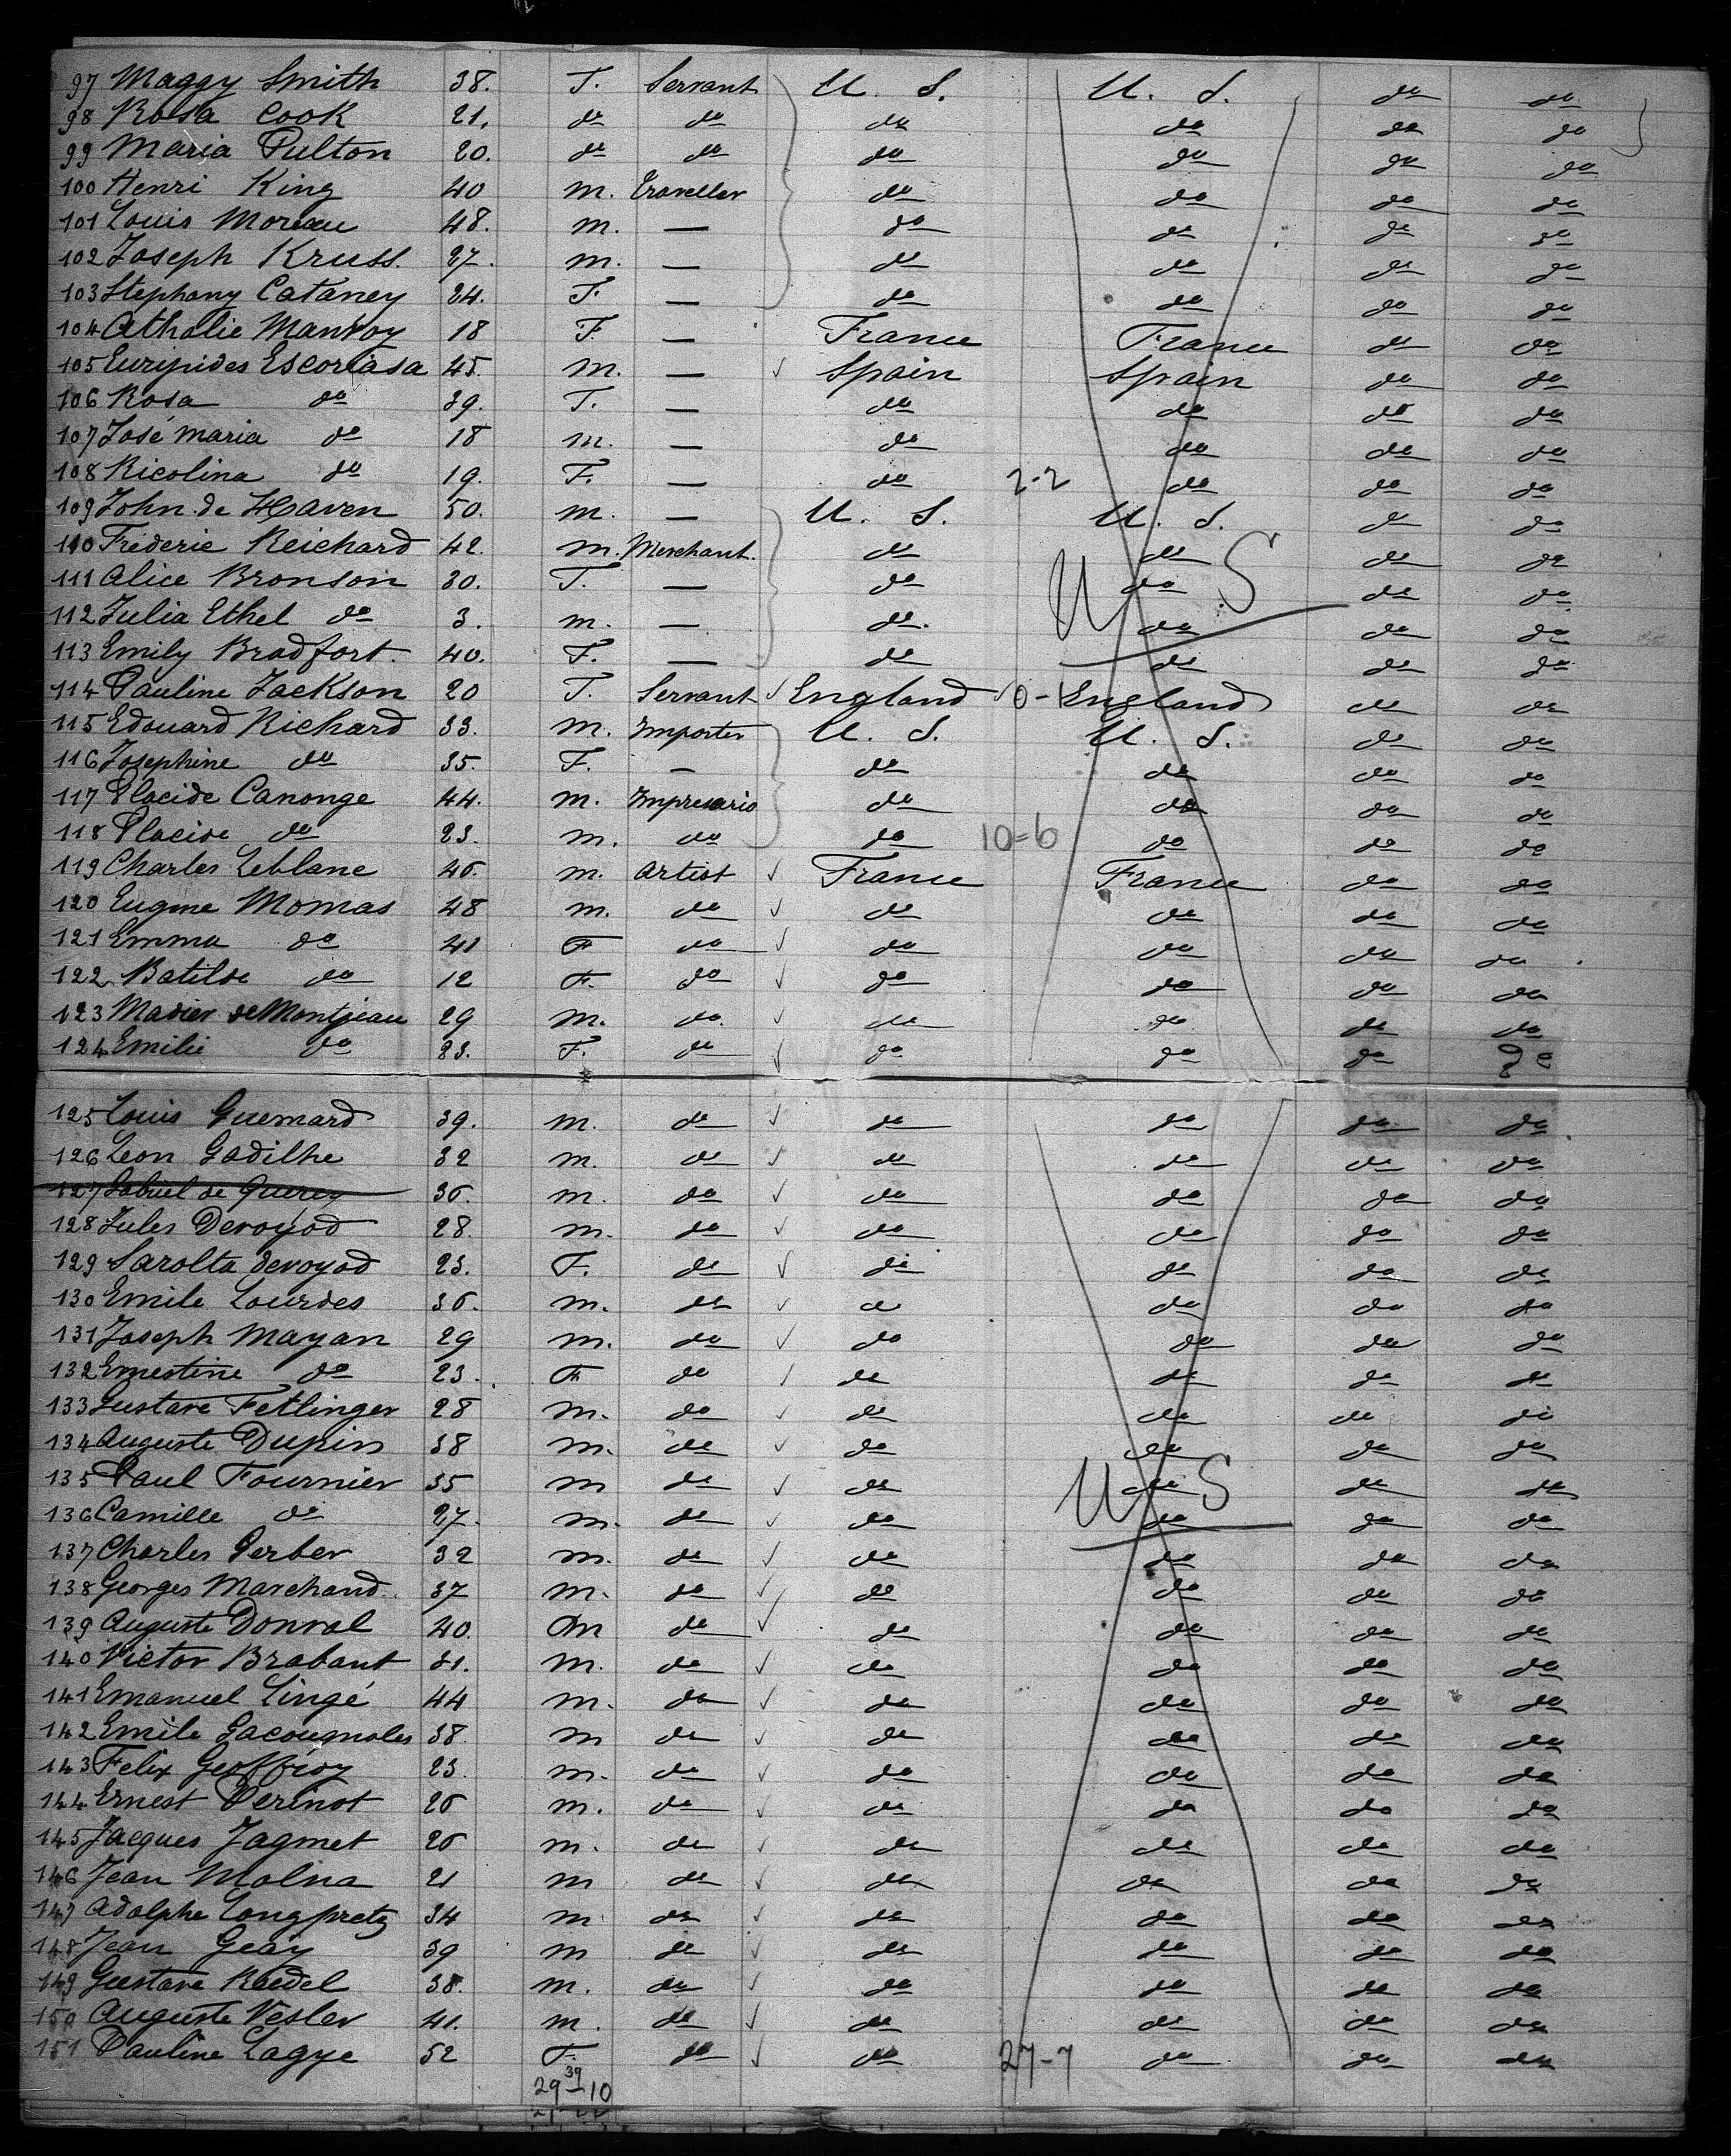 97 Maggy Smith 38. F. Servant U. S. U. S. do do
98 Rosa Cook 21. do do do do do do
99 Maria Pulton 20. do do do do do do
100 Henri King 40 m. Traveller do do do do
101 Louis Moreau 48. m. — do do do do
102 Joseph Kruss. 27. m. — do do do do
103 Stephany Cataney 24. F. — do do do do
104 Athalie Manroy 18 F. — France France do do
105 Euripides Escoriasa 45. m. — ✓ Spain Spain do do
106 Rosa do 39. F. — do do do do
107 José maria do 18 m. — do do do do
108 Nicolina do 19. F. — do 2-2 do do do
109 John de Haven 50. m. — U. S. U. S. do do
110 Frederic Reichard 42. m. Merchant. do do do do
111 Alice Bronson 30. F. — do do do do
U S
112 Julia Ethel do 3. m. — do. do do do
113 Emily Bradfort. 40. F. — do do do do
114 Pauline Jackson 20 F. Servant ✓ England 0-1 England do do
115 Edouard Richard 33. m. Importer U. S. U. S. do do
116 Josephine do 35. F. — do do do do
117 Placide Canonge 44. m. Impresario do do do do
118 Placide do 23. m. do do 10=6 do do do
119 Charles Leblanc 46. m. Artist ✓ France France do do
120 Eugene Momas 48 m. do ✓ do do do do
121 Emma do 41 F do ✓ do do do do
122 Batilde do 12 F. do ✓ do do do do
123 Madier de Montjeau 29 m. do. ✓ do do do do
124 Emilie do 23. F. do ✓ do do do do
125 Louis Guemard 39. m. do ✓ do do do do
126 Leon Gadilhe 32 m. do ✓ do do do do
127 Gabriel de Quercy 36. m. do ✓ do do do do
128 Jules Devoyod 28. m. do ✓ do do do do
129 Sarolta devoyod 23. F. do ✓ do do do do
130 Emile Lourdes 36. m. do ✓ do do do do
131 Joseph Mayan 29 m. do ✓ do do do do
132 Ernestine do 23. F do ✓ do do do do
133 Gustave Fetlinger 28 m. do ✓ do do do do
134 Auguste Dupin 38 m. do ✓ do do do do
135 Paul Fournier 35 m do ✓ do do do do
U S
136 Camille do 27. m. do ✓ do do do do
137 Charles Perber 32 m. do ✓ do do do do
138 Georges Marchand. 37 m. do ✓ do do do do
139 Auguste Donval 40. m do ✓ do do do do
140 Victor Brabant 31. m. do ✓ do do do do
141 Emanuel Lingé 44 m. do ✓ do do do do
142 Emile Lacougnoles 38. m do ✓ do do do do
143 Felix Geoffroy 23. m. do ✓ do do do do
144 Ernest Perinot 26 m. do ✓ do do do do
145 Jacques Jagmet 26 m. do ✓ do do do do
146 Jean Molina 21 m do ✓ do do do do
147 Adolphe Longpretz 34 m do ✓ do do do do
148 Jean Geay 39 m do ✓ do do do do
149 Gustave Roedel 38. m. do ✓ do do do do
150 Auguste Vesler 41. m. do ✓ do do do do
151 Pauline Lagye 52 F. do ✓ do 27-7 do do do
39
29-10